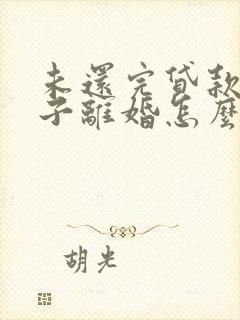 未還完貸款
子離婚怎麼
胡光